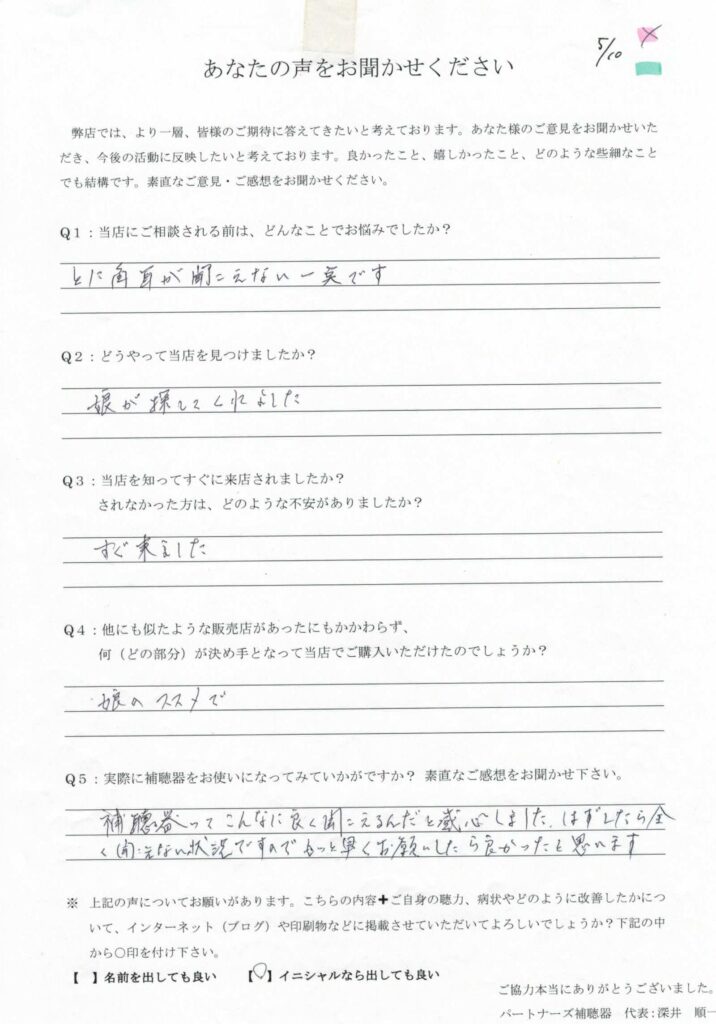 5/10
あなたの声をお聞かせください
弊店では、より一層、皆様のご期待に答えてきたいと考えております。あなた様のご意見をお聞かせいた
だき、今後の活動に反映したいと考えております。良かったこと、嬉しかったこと、どのような些細なこと
でも結構です。素直なご意見・ご感想をお聞かせください。
Q1：当店にご相談される前は、どんなことでお悩みでしたか？
とに角耳が聞こえない一実です
Q2：どうやって当店を見つけましたか？
娘が探してくれました
Q3：当店を知ってすぐに来店されましたか？
されなかった方は、どのような不安がありましたか？
すぐ来ました
Q4：他にも似たような販売店があったにもかかわらず、
何（どの部分）が決め手となって当店でご購入いただけたのでしょうか？
娘のススメで
Q5：実際に補聴器をお使いになってみていかがですか？ 素直なご感想をお聞かせ下さい。
補聴器ってこんなに良く聞こえるんだと感心しました、はずしたら全
く聞こえない状況ですのでもっと早くお願いしたら良かったと思います
※ 上記の声についてお願いがあります。こちらの内容＋ご自身の聴力、病状やどのように改善したかにつ
いて、インターネット（ブログ）や印刷物などに掲載させていただいてよろしいでしょうか？下記の中
から〇印を付け下さい。
【 】名前を出しても良い 【〇】イニシャルなら出しても良い
ご協力本当にありがとうございました。
パートナーズ補聴器 代表：深井 順一